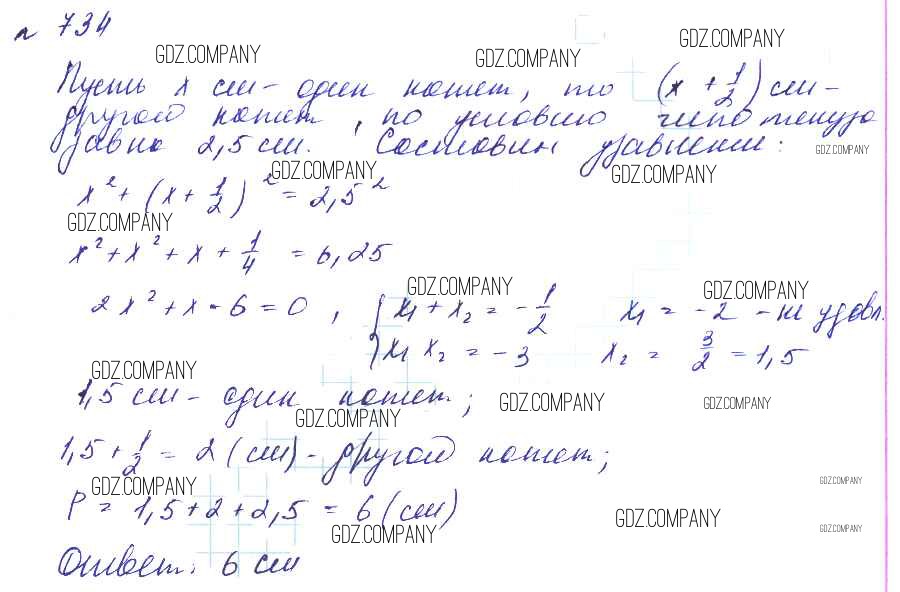 № 734
GDZ.COMPANY GDZ.COMPANY GDZ.COMPANY
Пусть x см - один катет, то (x + 1/2) см -
другой катет, по условию гипотенуза
равна 2,5 см. Составим уравнение:
GDZ.COMPANY
GDZ.COMPANY GDZ.COMPANY
x² + (x + 1/2)² = 2,5²
GDZ.COMPANY
x² + x² + x + 1/4 = 6,25
GDZ.COMPANY GDZ.COMPANY
2x² + x - 6 = 0, { x₁ + x₂ = -1/2 x₁ = -2 - не удовл.
x₁ x₂ = -3 x₂ = 3/2 = 1,5
GDZ.COMPANY
1,5 см - один катет;
GDZ.COMPANY GDZ.COMPANY GDZ.COMPANY
1,5 + 1/2 = 2 (см) - другой катет;
GDZ.COMPANY GDZ.COMPANY
P = 1,5 + 2 + 2,5 = 6 (см)
GDZ.COMPANY GDZ.COMPANY GDZ.COMPANY
Ответ: 6 см